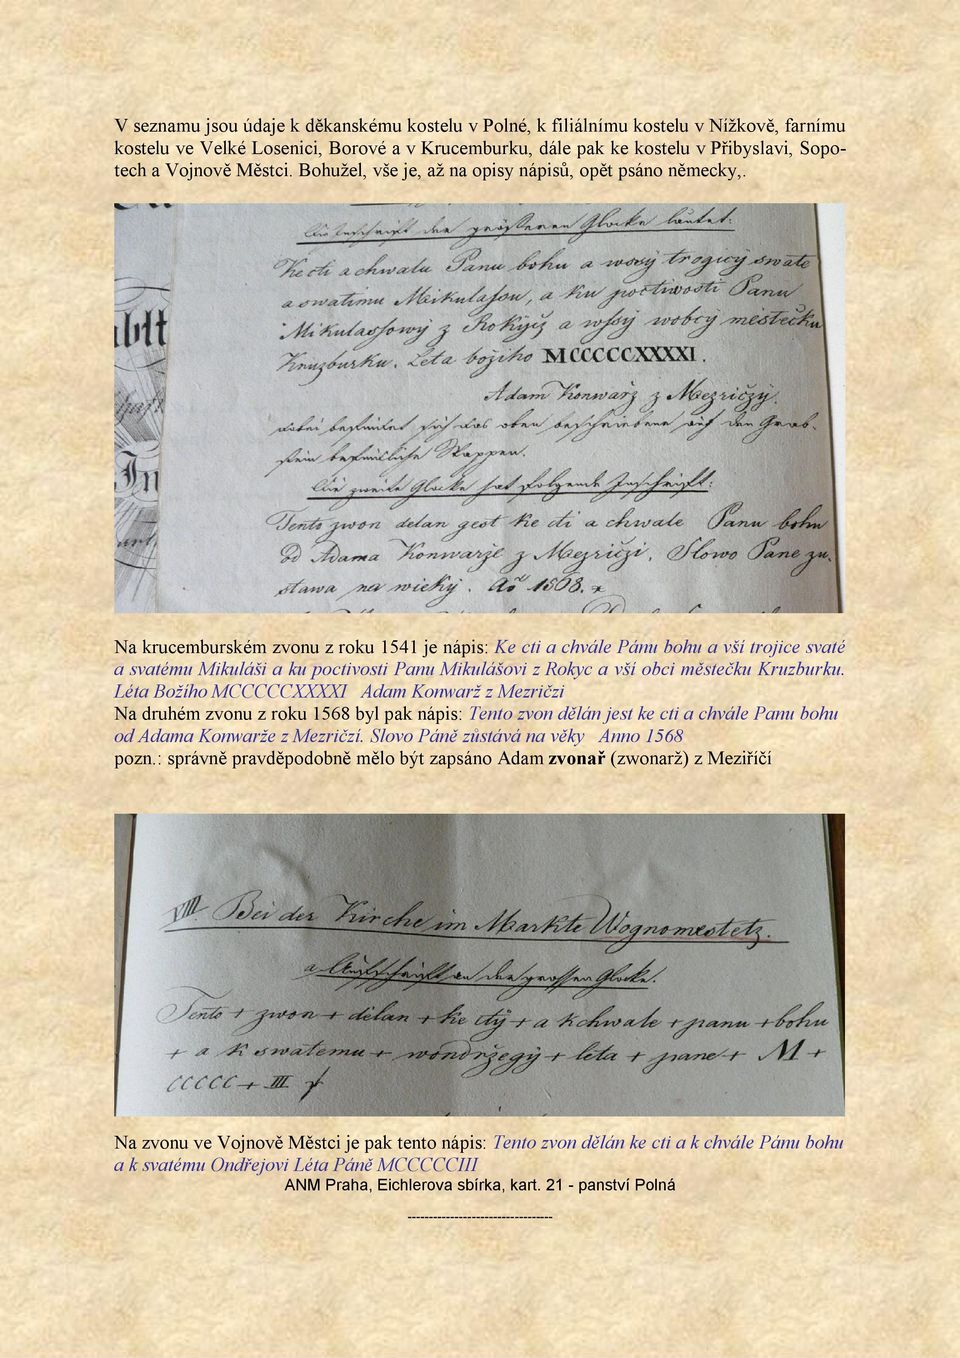 V seznamu jsou údaje k děkanskému kostelu v Polné, k filiálnímu kostelu v Nížkově, farnímu
kostelu ve Velké Losenici, Borové a v Krucemburku, dále pak ke kostelu v Přibyslavi, Sopo-
tech a Vojnově Městci. Bohužel, vše je, až na opisy nápisů, opět psáno německy,.
Aufschrift der größeren Glocke lautet:
Ke cti a chwalu Panu bohu a wssý trogicý swate
a swatimu Mikulassou, a ku poctiwosti Panu
Mikulassowý z Rokýcz a wssý wobcý městečku
Kruzburku. Leta božiho MCCCCCXXXXI.
Adam Konwarž z Mezričzý.
dabei befindet sich das oben beschriebene auf den Grab-
stein befindliche Wappen.
Die zweite Glocke hat folgende Inschrift:
Tento zwon delan gest ke cti a chwale Panu bohu
od Adama Konwarže z Mezričzi. Slowo Pane zu-
stawa na wieký. Aõ 1568.
Na krucemburském zvonu z roku 1541 je nápis: Ke cti a chvále Pánu bohu a vší trojice svaté
a svatému Mikuláši a ku poctivosti Panu Mikulášovi z Rokyc a vší obci městečku Kruzburku.
Léta Božího MCCCCCXXXXI Adam Konwarž z Mezričzi
Na druhém zvonu z roku 1568 byl pak nápis: Tento zvon dělán jest ke cti a chvále Panu bohu
od Adama Konwarže z Mezričzí. Slovo Páně zůstává na věky Anno 1568
pozn.: správně pravděpodobně mělo být zapsáno Adam zvonař (zwonarž) z Meziříčí
VIII. Bei der Kirche im Markte Wognomestetz.
a Aufschrift an der grossen Glocke.
Tento + zwon + dělan + ke ctý + a k chwale + panu + bohu
+ a k swatemu + wondržegý + léta + pane + M +
CCCCC + III
Na zvonu ve Vojnově Městci je pak tento nápis: Tento zvon dělán ke cti a k chvále Pánu bohu
a k svatému Ondřejovi Léta Páně MCCCCCIII
ANM Praha, Eichlerova sbírka, kart. 21 - panství Polná
----------------------------------